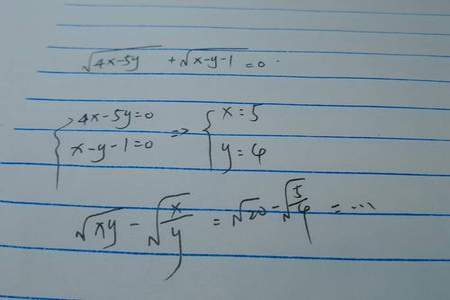 √(4x-5y) + √(x-y-1) = 0.
{ 4x-5y=0
x-y-1=0 => { x=5
y=4
√(xy) - √(x/y) = √20 - √(5/4) = ...